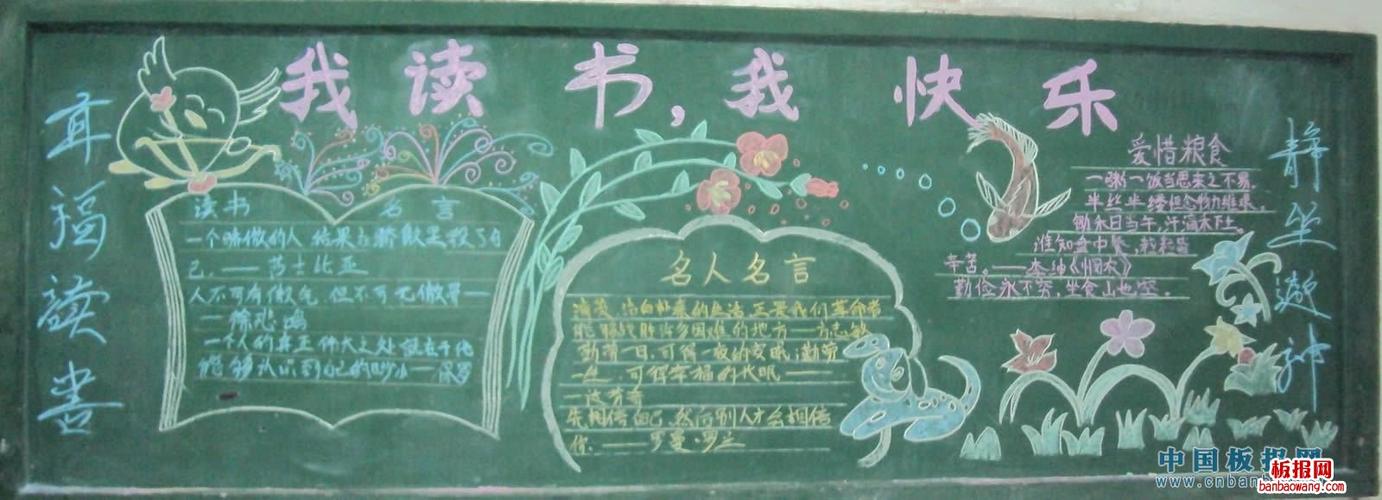 我读书,我快乐
福读
读书 名言
一个骄傲的人 结果在骄傲里毁了自
己.——莎士比亚
人不可有傲气 但不可无傲骨——
——徐悲鸿
一个人的真正伟大之处就在于他
能够认识到自己的渺小——保罗
名人名言
清贫,洁白朴素的生活,正是我们革命者
能够战胜许多困难的地方——方志敏
勤劳一日,可得一夜的安眠;勤劳
一生,可得幸福的长眠——
—达芬奇
先相信自己,然后别人才会相信
你.——罗曼·罗兰
爱惜粮食
一粥一饭当思来之不易,
半丝半缕恒念物力维艰。
锄禾日当午,汗滴禾下土。
谁知盘中餐,粒粒皆
辛苦。——李绅《悯农》
勤俭永不穷,坐食山也空。
静坐神
中国板报网
www.cnban
板报网
banbaowang.com